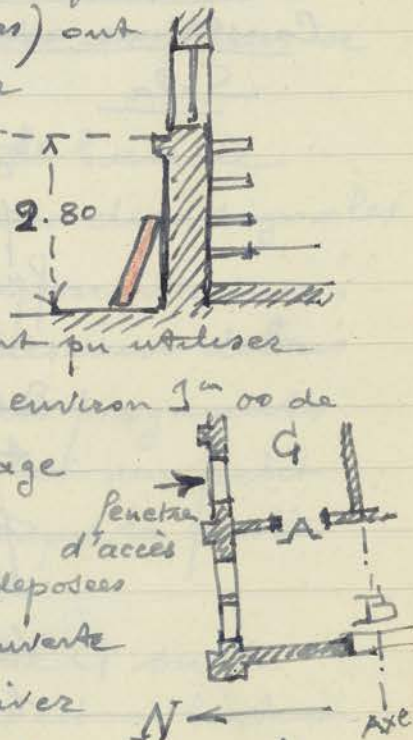 es) ont
2.80
nt pu utiliser
environ 1m 00 de
age
G
fenetre
d'accès
A
deposées
B
uverte
iver
N
Axe